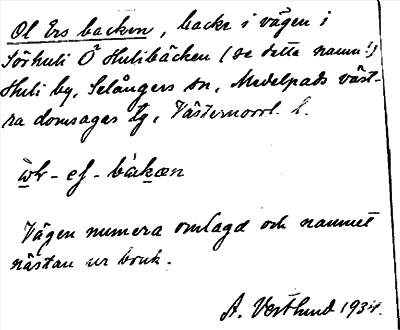 Ol Ers backen, backe i vägen i
Sörhuli Ö Hulibäcken (se detta namn!)
Huli by, Selångers sn, Medelpads väst-
ra domsagas tg, Västernorrl. l.
Vägen numera omlagd och namnet
nästan ur bruk.
A. Vestlund 1934.